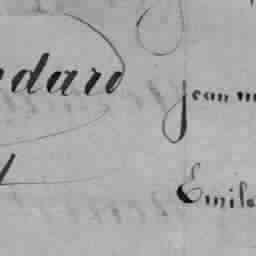 ndard
Jean m
Emile